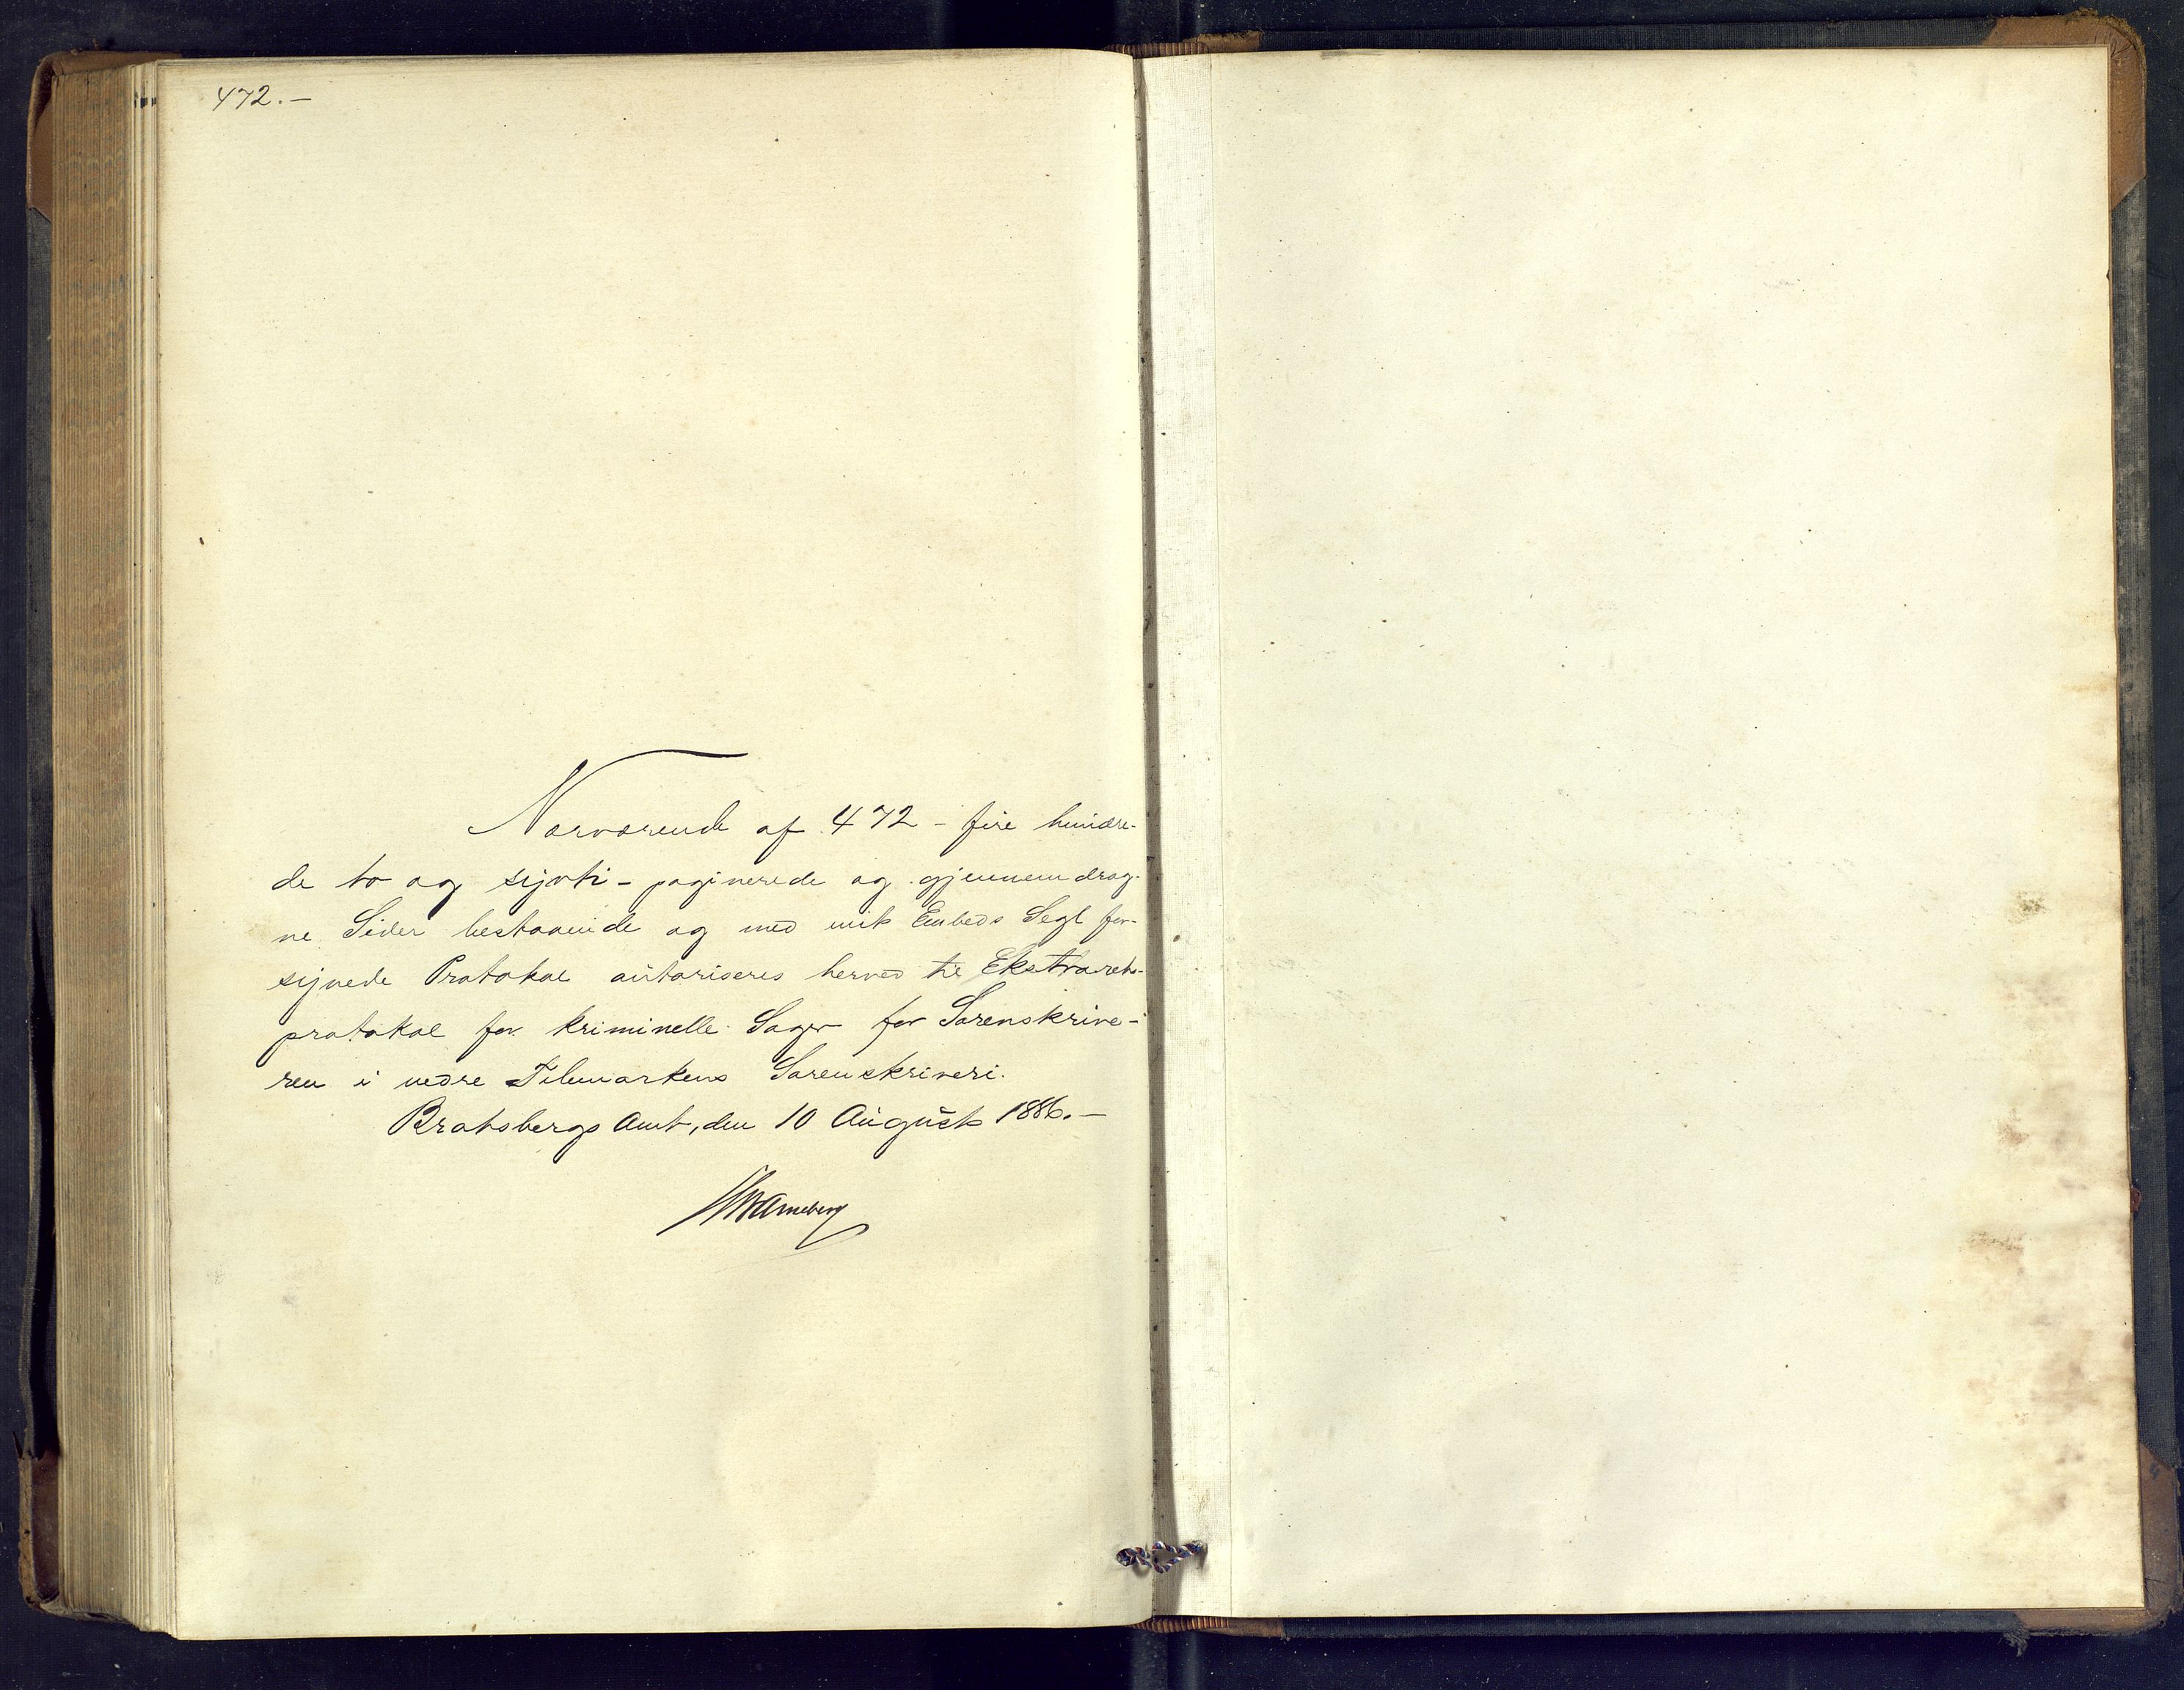 472.—
Nærværende af 472 - fire hundre-
de to og sytti - paginerede og gjennemdrag-
ne Sider bestaaende og med mit Embeds Segl for-
synede Protokol autoriseres herved til Ekstrarets-
protokol for kriminelle Sager for Sorenskrive-
ren i nedre Telemarkens Sorenskriveri.
Bratsbergs Amt, den 10 August 1886.—